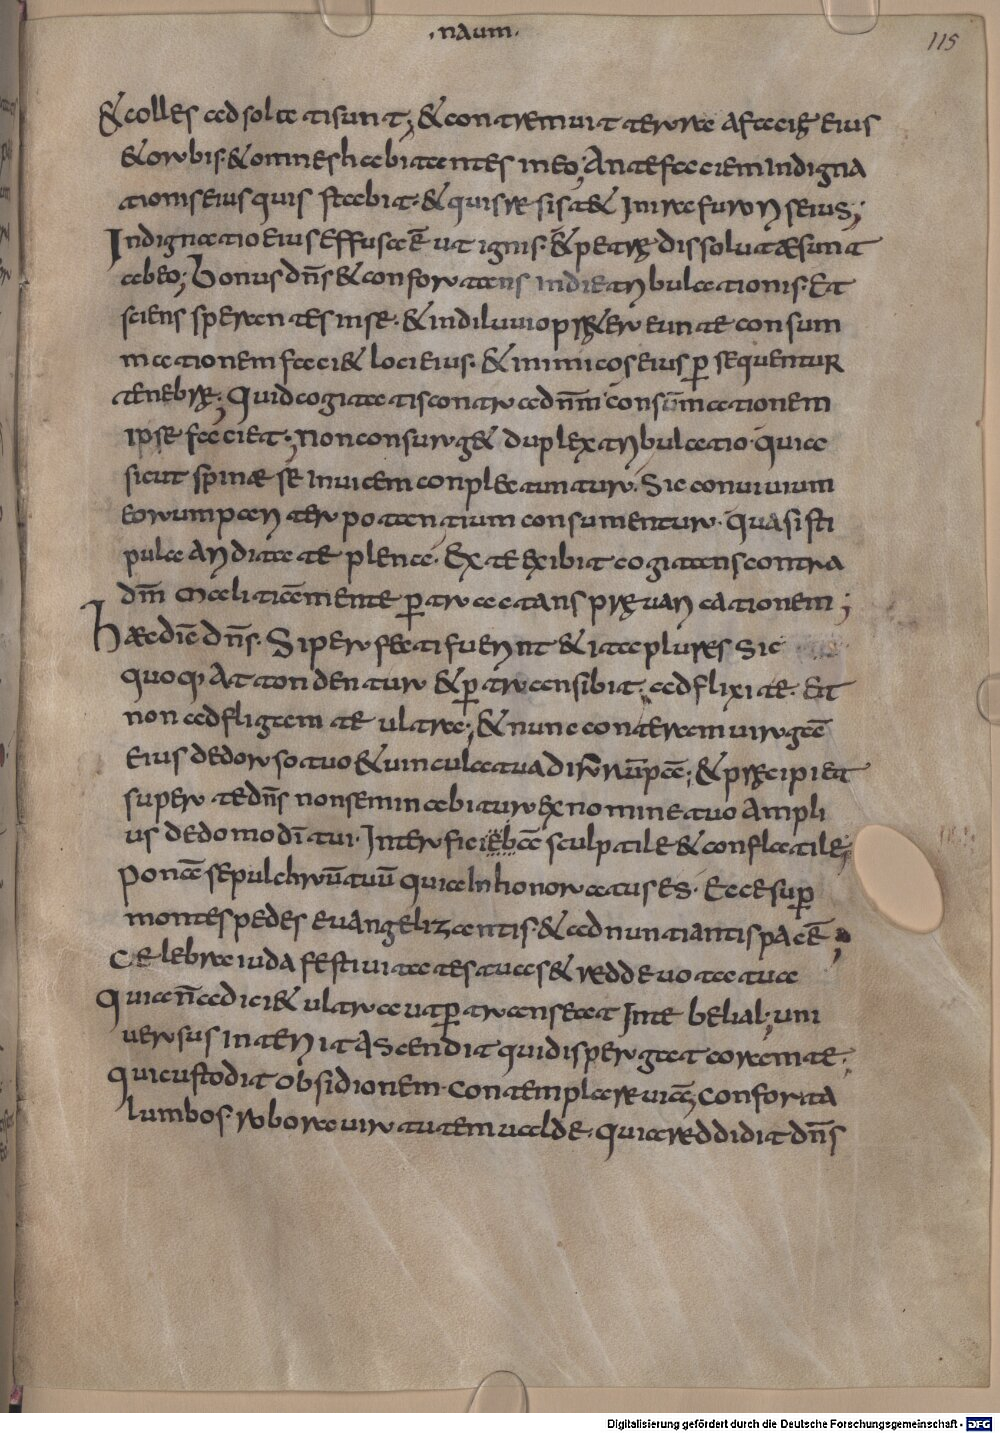 ·naum·
115
& colles adsolatisunt; & contremuit terra afacię eius
& orbis· & omnes habitantes ineo; Antefaciem Indigna
tionis eius quis stabit· & quis resist& Inira furoris eius;
Indignatio eius effusa ē ut ignis· & petrę dissolutæ sunt
abeo; bonus dn̄s & confortans indie tribulationis· Et
sciens sperantes inse· & indiluuio prę&ereunte consum
mationem faci& loci eius· & inimicos eius ꝑsequentur
tenebrę; Quid cogitatis contra dn̄m consūmationem
ipse faciet; non consurg& duplex tribulatio· quia
sicut spinæ se Inuicem conplectuntur· Sic conuiuium
eorum pariter potantium consumentur· quasi sti
pula ariditate plena· Ex te exibit cogitans contra
dm̄ malitiā mente ꝑtractans pręuaricationem;
hæc diē dn̄s· Si perfecti fuerint & ita plures sic
quoq; attondentur & ꝑtransibit· adflixi te· Et
non adfligam te ultra; & nunc conteram uirgā
eius dedorso tuo & uincula tua dirrūpā; & pręcipiet
super te dn̄s non seminabitur ex nomine tuo ampli
us dedomo dī tui· Interficiebā sculptile & conflatile;
ponā sepulchrū tuū quia Inhonoratus es· Ecce suꝑ
montes pedes euangelizantis· & adnuntiantis pacē;
Celebra iuda festiuitates tuas & redde uota tua
Quia n̄ adici& ultra ut ꝑtranseat Inte belial; uni
uersus interiit Ascendit qui dispergat coram te;
qui custodit obsidionem· contemplare uiā; conforta
lumbos· robora uirtutem ualde· quia reddidit dn̄s
Digitalisierung gefördert durch die Deutsche Forschungsgemeinschaft - DFG